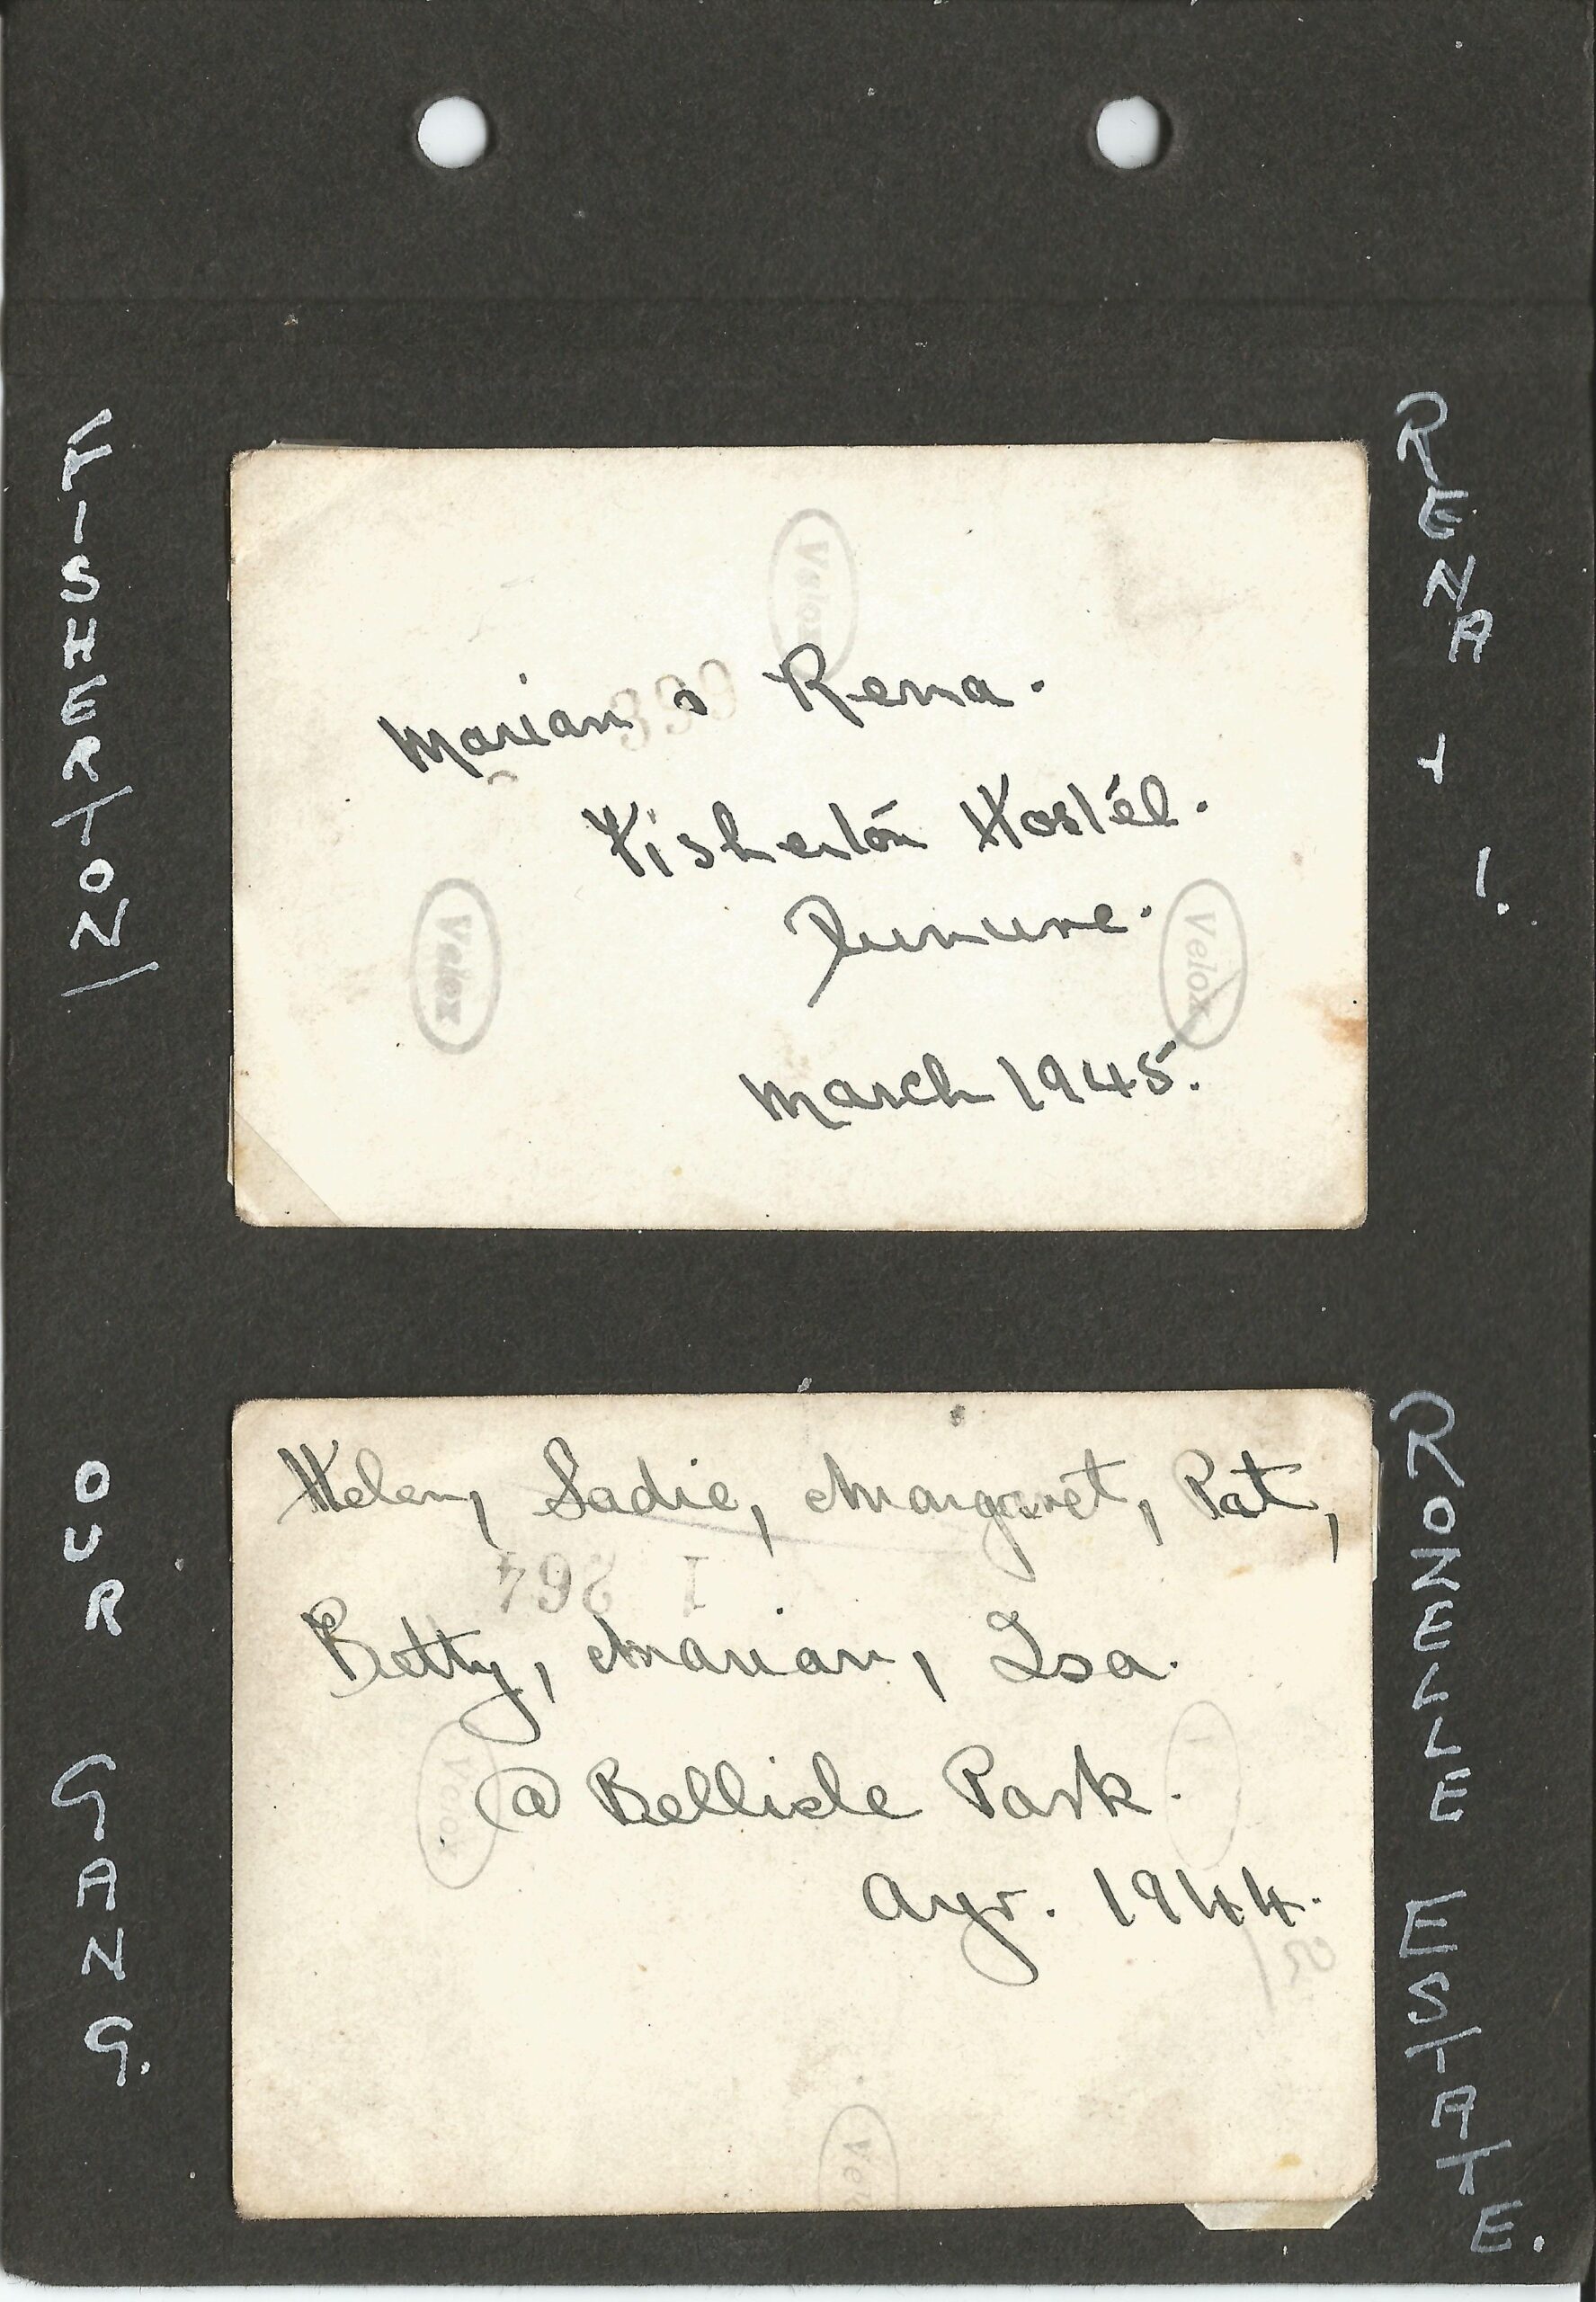 FISHERTON
RENA + I.
Velox
Marian & Rena.
339
Fisherton Hostel.
Dunure.
Velox
Velox
March 1945.
OUR GANG.
ROZELLE ESTATE.
Helen, Sadie, Margaret, Pat,
1 264
Betty, Marian, Isa.
@ Bellisle Park.
Velox
Ayr. 1944.